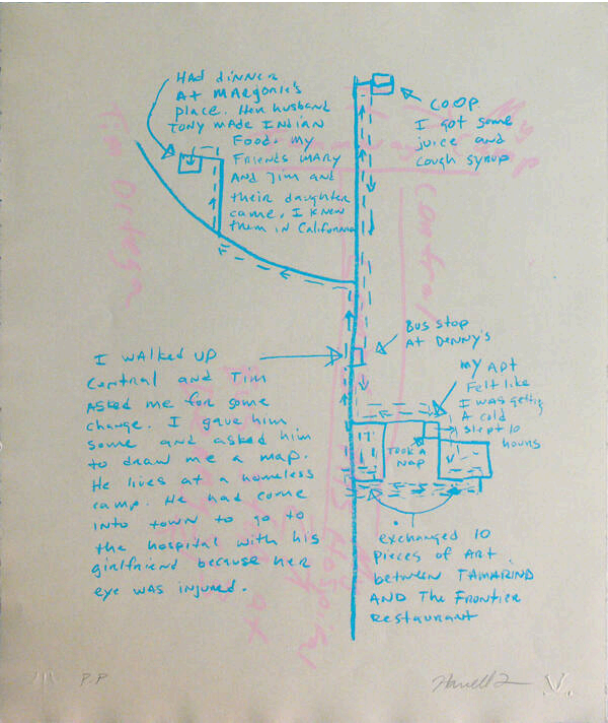 HAD dinner
At MARgonie's
place. Her husband
TONY MADE INDIAN
Food. my
Friends MARY
AND Jim and
their daughter
came. I knew
them in California
COOP
I got some
juice and
cough syrup
BUS STOP
AT DENNY'S
my APT
Felt like
I was getting
A cold
slept 10
hours
TOOK A
NAP
I WALKED UP
Central and Tim
ASKED me for some
change. I gave him
some and asked him
to draw me a map.
He lives at a homeless
camp. He had come
into town to go to
the hospital with his
girlfriend because her
eye was injured.
exchanged 10
pieces of ART
between TAMARIND
AND The Frontier
Restaurant
Central
Hospital
P.P